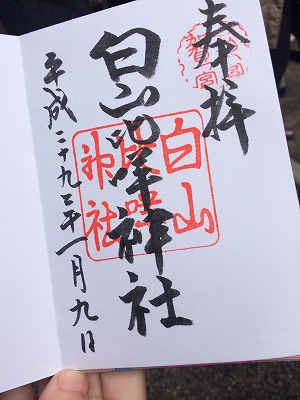 奉拝
白山比咩神社
白山
比咩
神社
平成二十九年一月九日